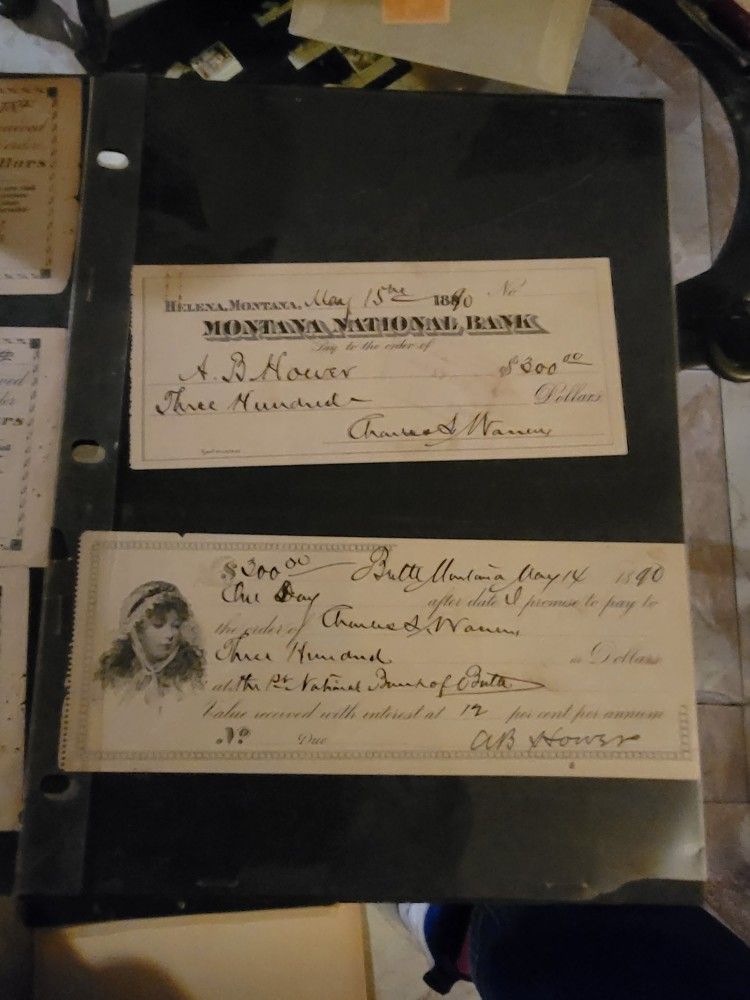 Helena, Montana, May 15th 1890 No.
MONTANA NATIONAL BANK
Pay to the order of
A. B. Hower $300 00
Three Hundred Dollars
Charles S. Warren
$300 00 Butte Montana May 14 1890
One Day after date I promise to pay to
the order of Charles S. Warren
Three Hundred Dollars
at the 1st National Bank of Butte
Value received with interest at 12 per cent per annum
No. Due AB Hower